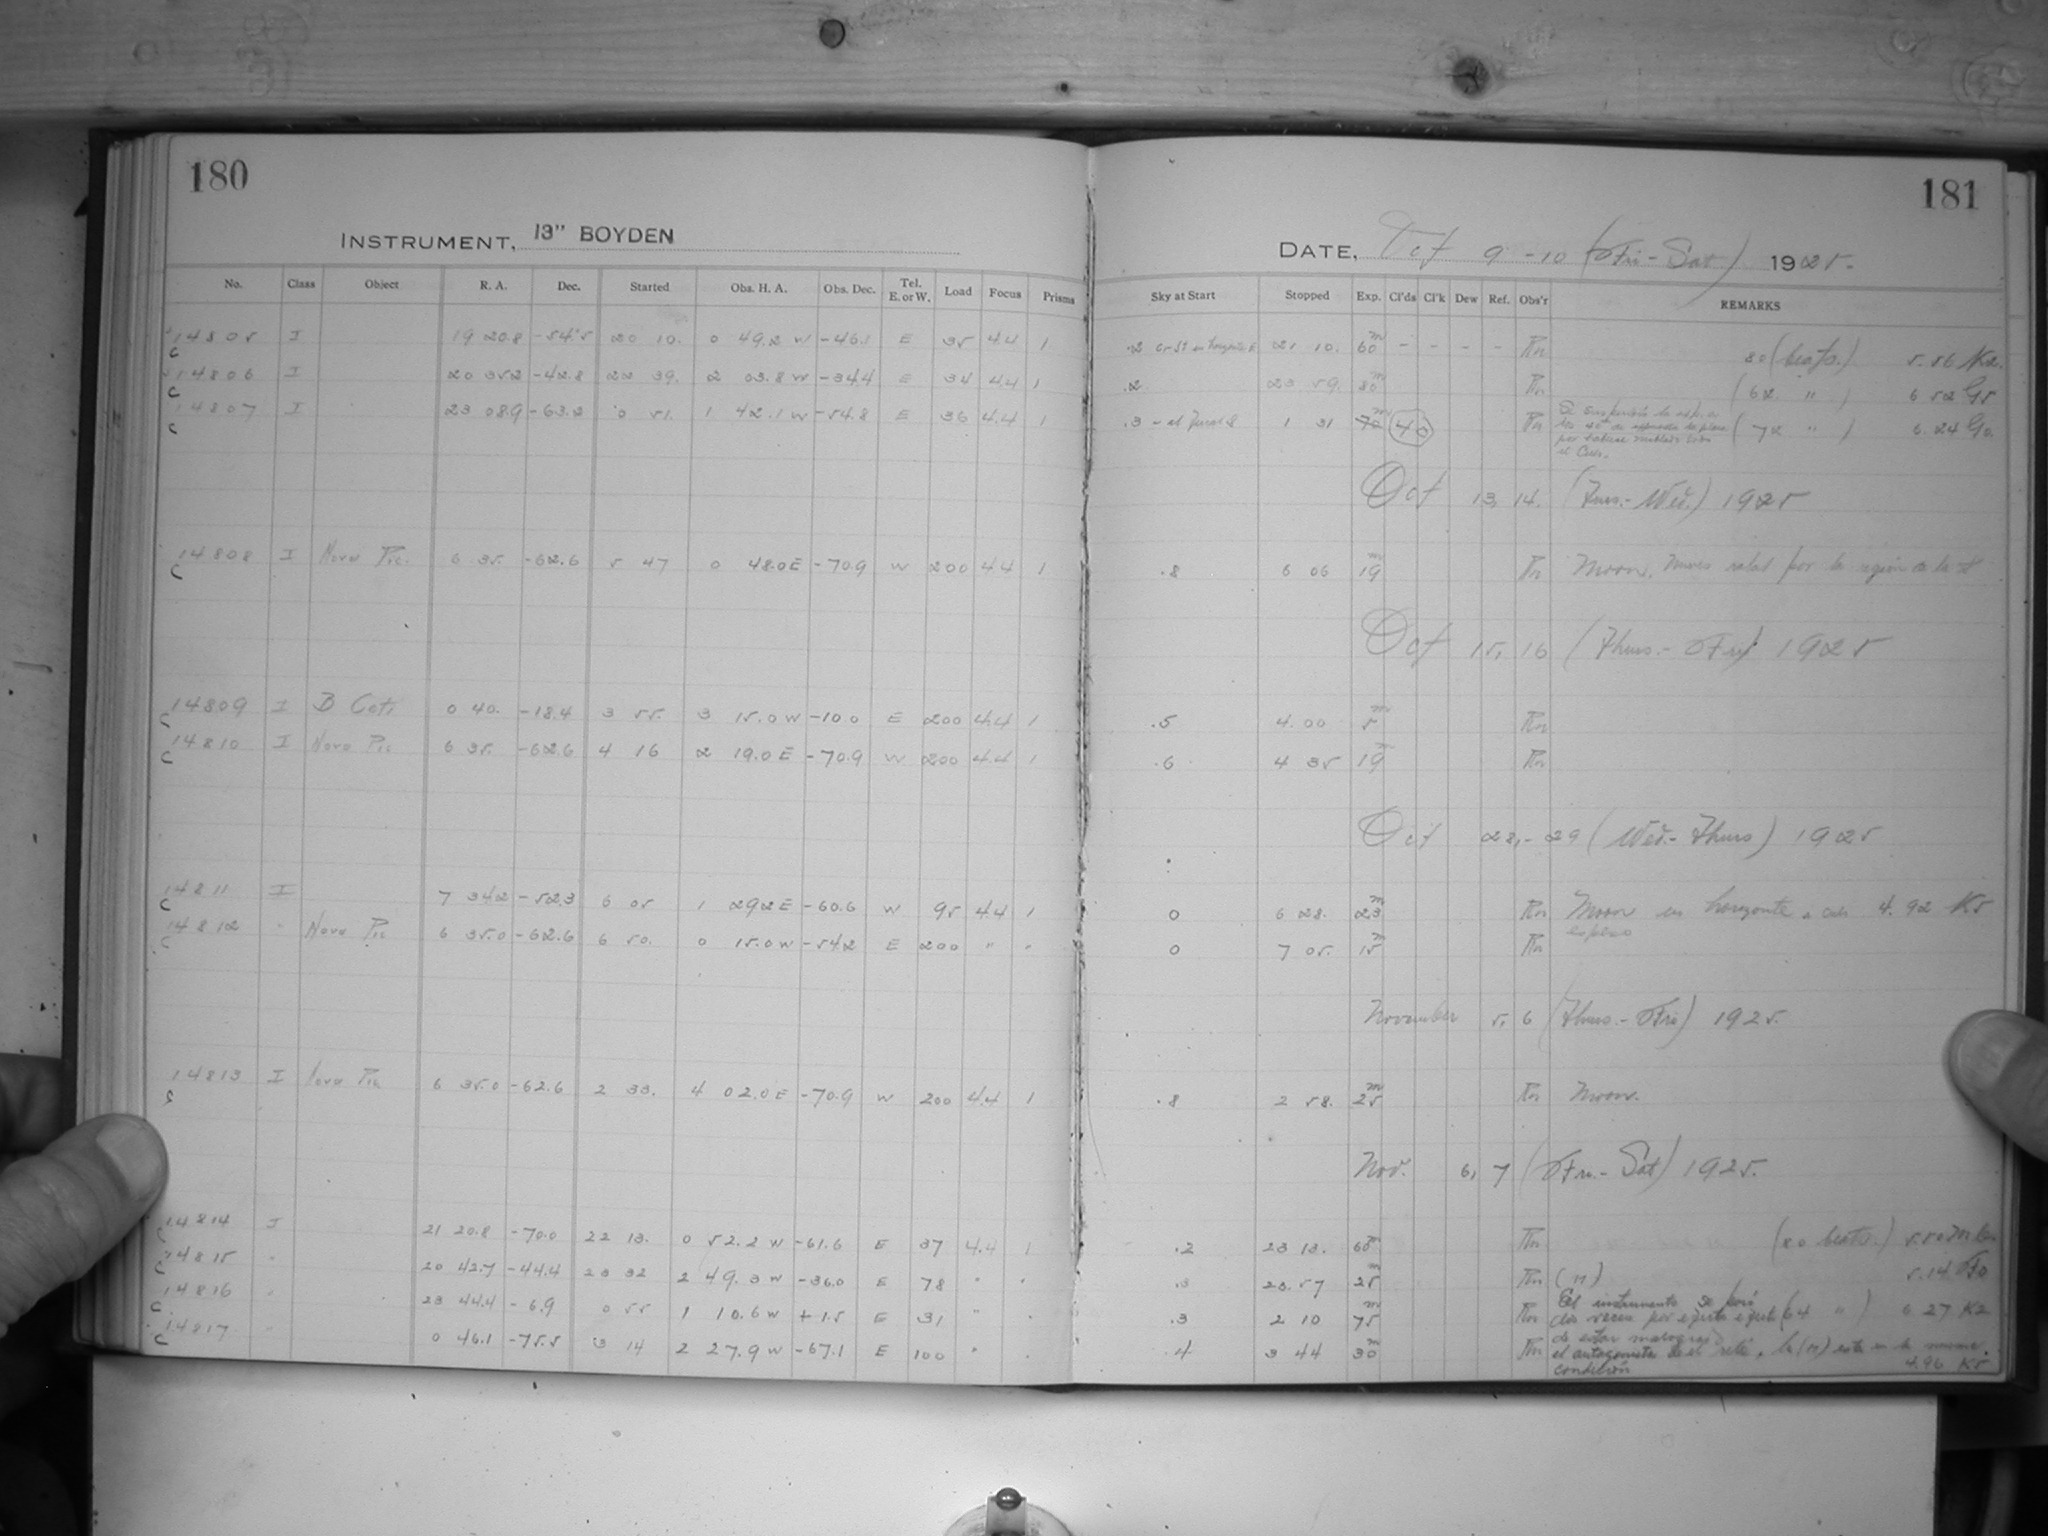 180
INSTRUMENT, 13" BOYDEN
No. Class Object R. A. Dec. Started Obs. H. A. Obs. Dec. Tel. E. or W. Load Focus Prisms
14805 I 19 20.8 -54.5 20 10. 0 49.2 W -46.1 E 35 4.4 1
14806 I 20 35.2 -42.8 22 39. 2 03.8 W -34.4 E 34 4.4 1
14807 I 23 08.9 -63.2 0 51. 1 42.1 W -54.8 E 36 4.4 1
14808 I Nova Pic. 6 35. -62.6 5 47 0 48.0 E -70.9 W 200 4.4 1
14809 I B Ceti 0 40. -18.4 3 55. 3 15.0 W -10.0 E 200 4.4 1
14810 I Nova Pic 6 35. -62.6 4 16 2 19.0 E -70.9 W 200 4.4 1
14811 I 7 34.2 -52.3 6 05 1 29.2 E -60.6 W 95 4.4 1
14812 " Nova Pic 6 35.0 -62.6 6 50. 0 15.0 W -54.2 E 200 " "
14813 I Nova Pic 6 35.0 -62.6 2 33. 4 02.0 E -70.9 W 200 4.4 1
14814 I 21 20.8 -70.0 22 13. 0 52.2 W -61.6 E 37 4.4 1
14815 " 20 42.7 -44.4 23 32 2 49.3 W -36.0 E 78 " "
14816 " 23 44.4 -6.9 0 55 1 10.6 W +1.5 E 31 " "
14817 " 0 46.1 -75.5 3 14 2 27.9 W -67.1 E 100 " "
181
DATE, Oct 9-10 (Fri-Sat) 1925.
Sky at Start Stopped Exp. Cl'ds Cl'k Dew Ref. Obs'r REMARKS
.2 en horizonte E 21 10. 60m - - - - Rn 80 (beats.) 5.56 K2.
.2 23 59. 80m Rn (62 " ) 6.52 G5
.3 - 1 31 70m 40 Rn (72 " ) 6.24 G0.
por haberse nublado todo
el Cielo.
Oct 13, 14. (Tues.-Wed.) 1925
.8 6 06 19m Rn Moon. por la region de la
Oct 15, 16 (Thurs.-Fri) 1925
.5 4.00 5m Rn
.6 4 35 19m Rn
Oct 28,-29 (Wed.-Thurs) 1925
0 6 28. 23m Rn Moon en horizonte 4.92 K5
0 7 05. 15m Rn
November 5, 6 (Thurs.-Fri) 1925.
.8 2 58. 25m Rn Moon.
Nov. 6, 7 (Fri.-Sat) 1925.
.2 23 13. 60m Rn (80 beats.) 5.50
.3 23.57 25m Rn (n) 5.14 F0
El instrumento se
.3 2 10 75m Rn dos veces por (64 " ) 6 27 K2
de estar
.4 3 44 30m Rn el antagonista de el rele, la (n) esta en la misma
condición 4.96 K5